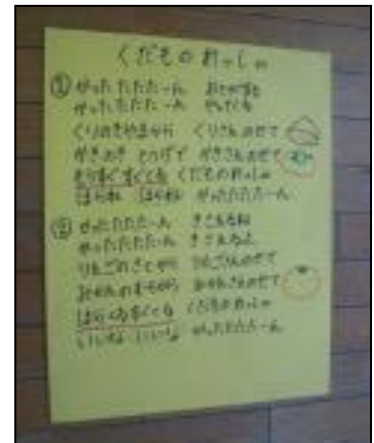 くだものれっしゃ
① がったたたたーん おとがする
がったたたたーん やってくる
くりのきやまから くりさんのせて
かきのき とうげで かきさんのせて
もうすぐすぐくる くだものれっしゃ
はしれ はしれ がったたたたーん
② がったたたたーん きこえるね
がったたたたーん きこえるよ
りんごのさとから りんごさんのせて
みかんのむらから みかんさんのせて
ほらくるすぐくる くだものれっしゃ
いいな いいな がったたたたーん